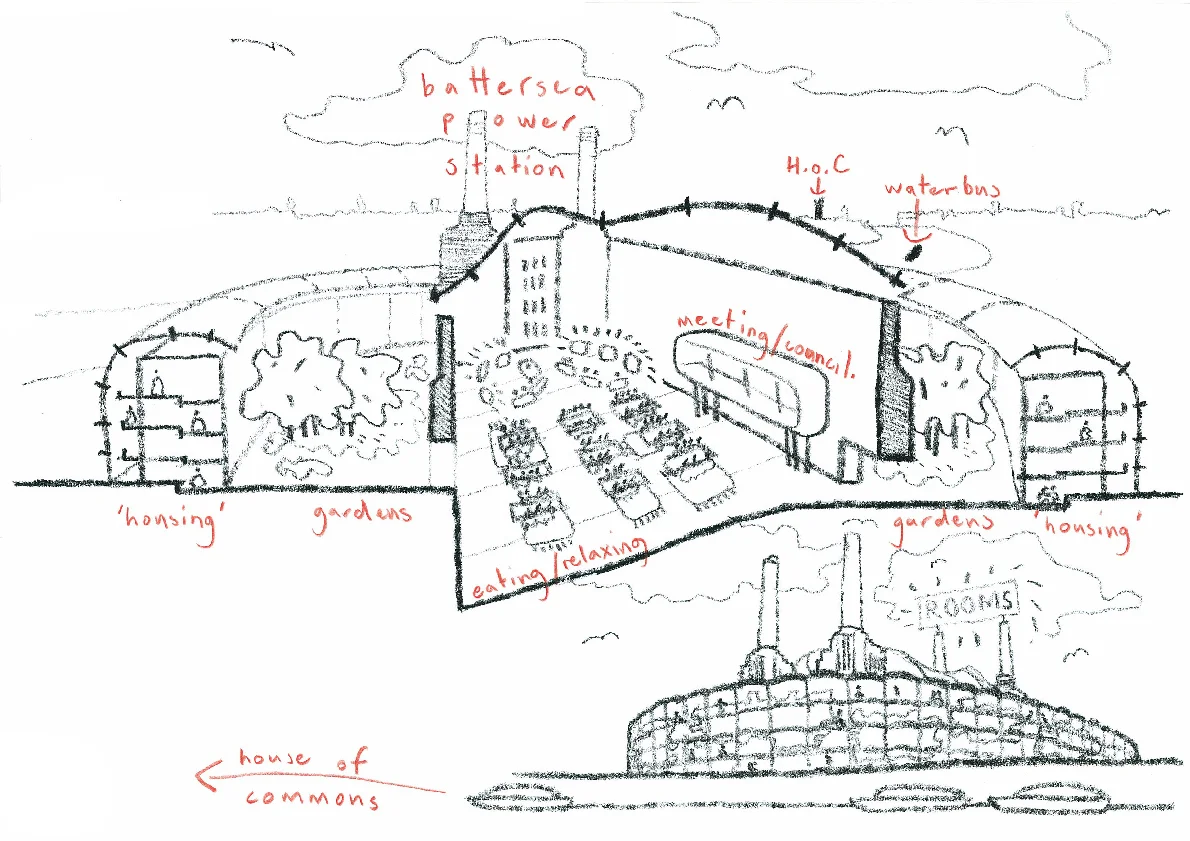 battersea
power
station
H.o.C
waterbus
meeting/council.
'housing'
gardens
eating/relaxing
gardens
'housing'
ROOMS
house of
commons